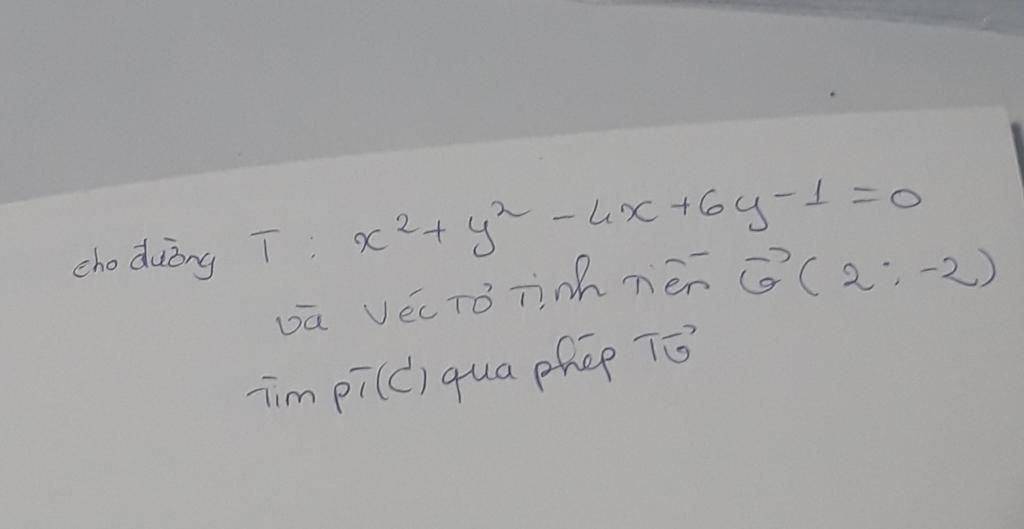 cho đường T : x² + y² - 4x + 6y - 1 = 0
và véc tơ tịnh tiến v⃗ ( 2 ; -2 )
Tìm pT (C') qua phép Tv⃗